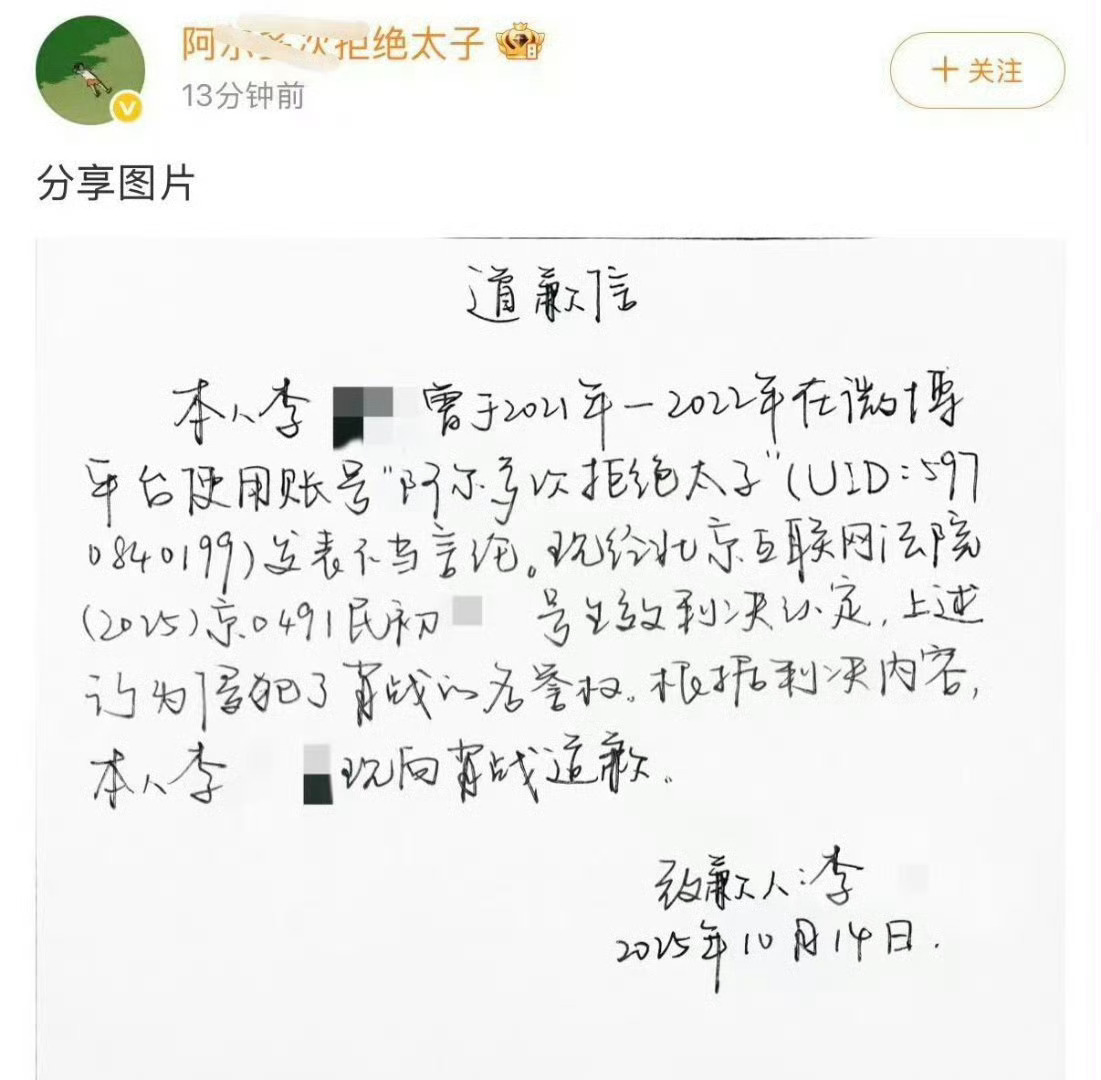 阿尔多次拒绝太子
13分钟前
+ 关注
分享图片
道歉信
本人李 曾于2021年-2022年在微博
平台使用账号“阿尔多次拒绝太子”(UID:597
0840199)发表不当言论。现经北京互联网法院
(2025)京0491民初 号生效判决认定,上述
行为侵犯了肖战的名誉权。根据判决内容,
本人李 现向肖战道歉。
致歉人:李
2025年10月14日.